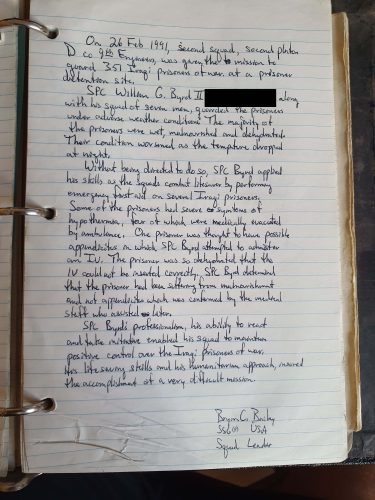 On 26 Feb 1991, second squad, second platon
D co 9th Engineers, was given the mission to
guard 351 Iraqi prisoners of war at a prisoner
detention site.
SPC William G. Byrd II along
with his squad of seven men, guarded the prisoners
under adverse weather conditions. The majority of
the prisoners were wet, malnourished and dehydrated.
Their condition worsened as the tempture dropped
at night.
Without being directed to do so, SPC Byrd applied
his skills as the squads combat lifesaver by performing
emergency first aid on several Iraqi prisoners.
Some of the prisoners had severe symtoms of
hypothermea, four of which were medically evacuated
by ambulance. One prisoner was thought to have possible
appendicites in which SPC Byrd attempted to administer
an IV. The prisoner was so dehydrated that the
IV could not be inserted correctly. SPC Byrd determined
that the prisoner had been suffering from malnourishment
and not appendicites which was confirmed by the medical
staff who assisted later.
SPC Byrd's professionalism, his ability to react
and take initiative enabled his squad to maintain
positive control over the Iraqi prisoners of war.
His lifesaving skills and his humanitarian approach, insured
the accomplishment of a very difficult mission.
Bryan C. Bailey
USA
Squad Leader